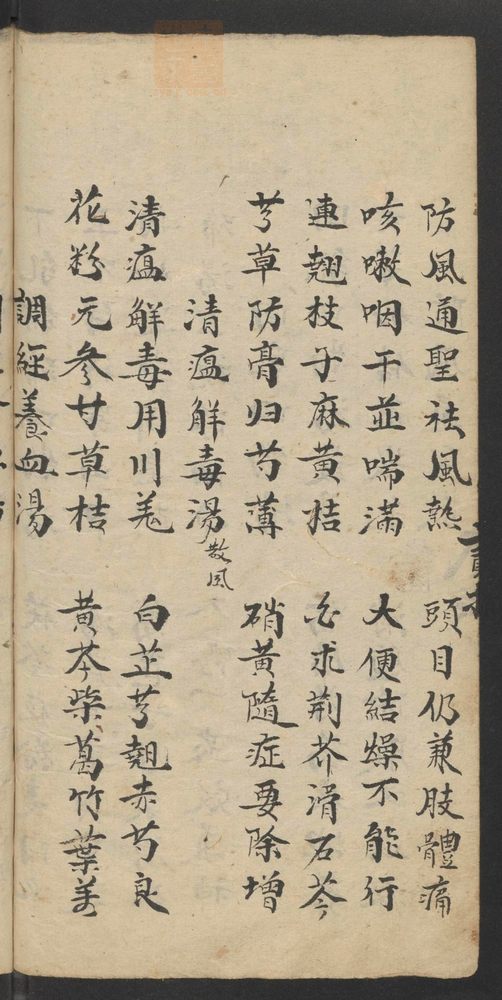 防風通聖祛風熱 頭目仍兼肢體痛
咳嗽咽干並喘滿 大便結燥不能行
連翹枝子麻黃桔 白求荊芥滑石芩
芎草防膏归芍薄 硝黃隨症要除增
清瘟解毒湯 散風
清瘟解毒用川羌 白芷芎翹赤芍良
花粉元參甘草桔 黃芩柴葛竹葉姜
調經養血湯